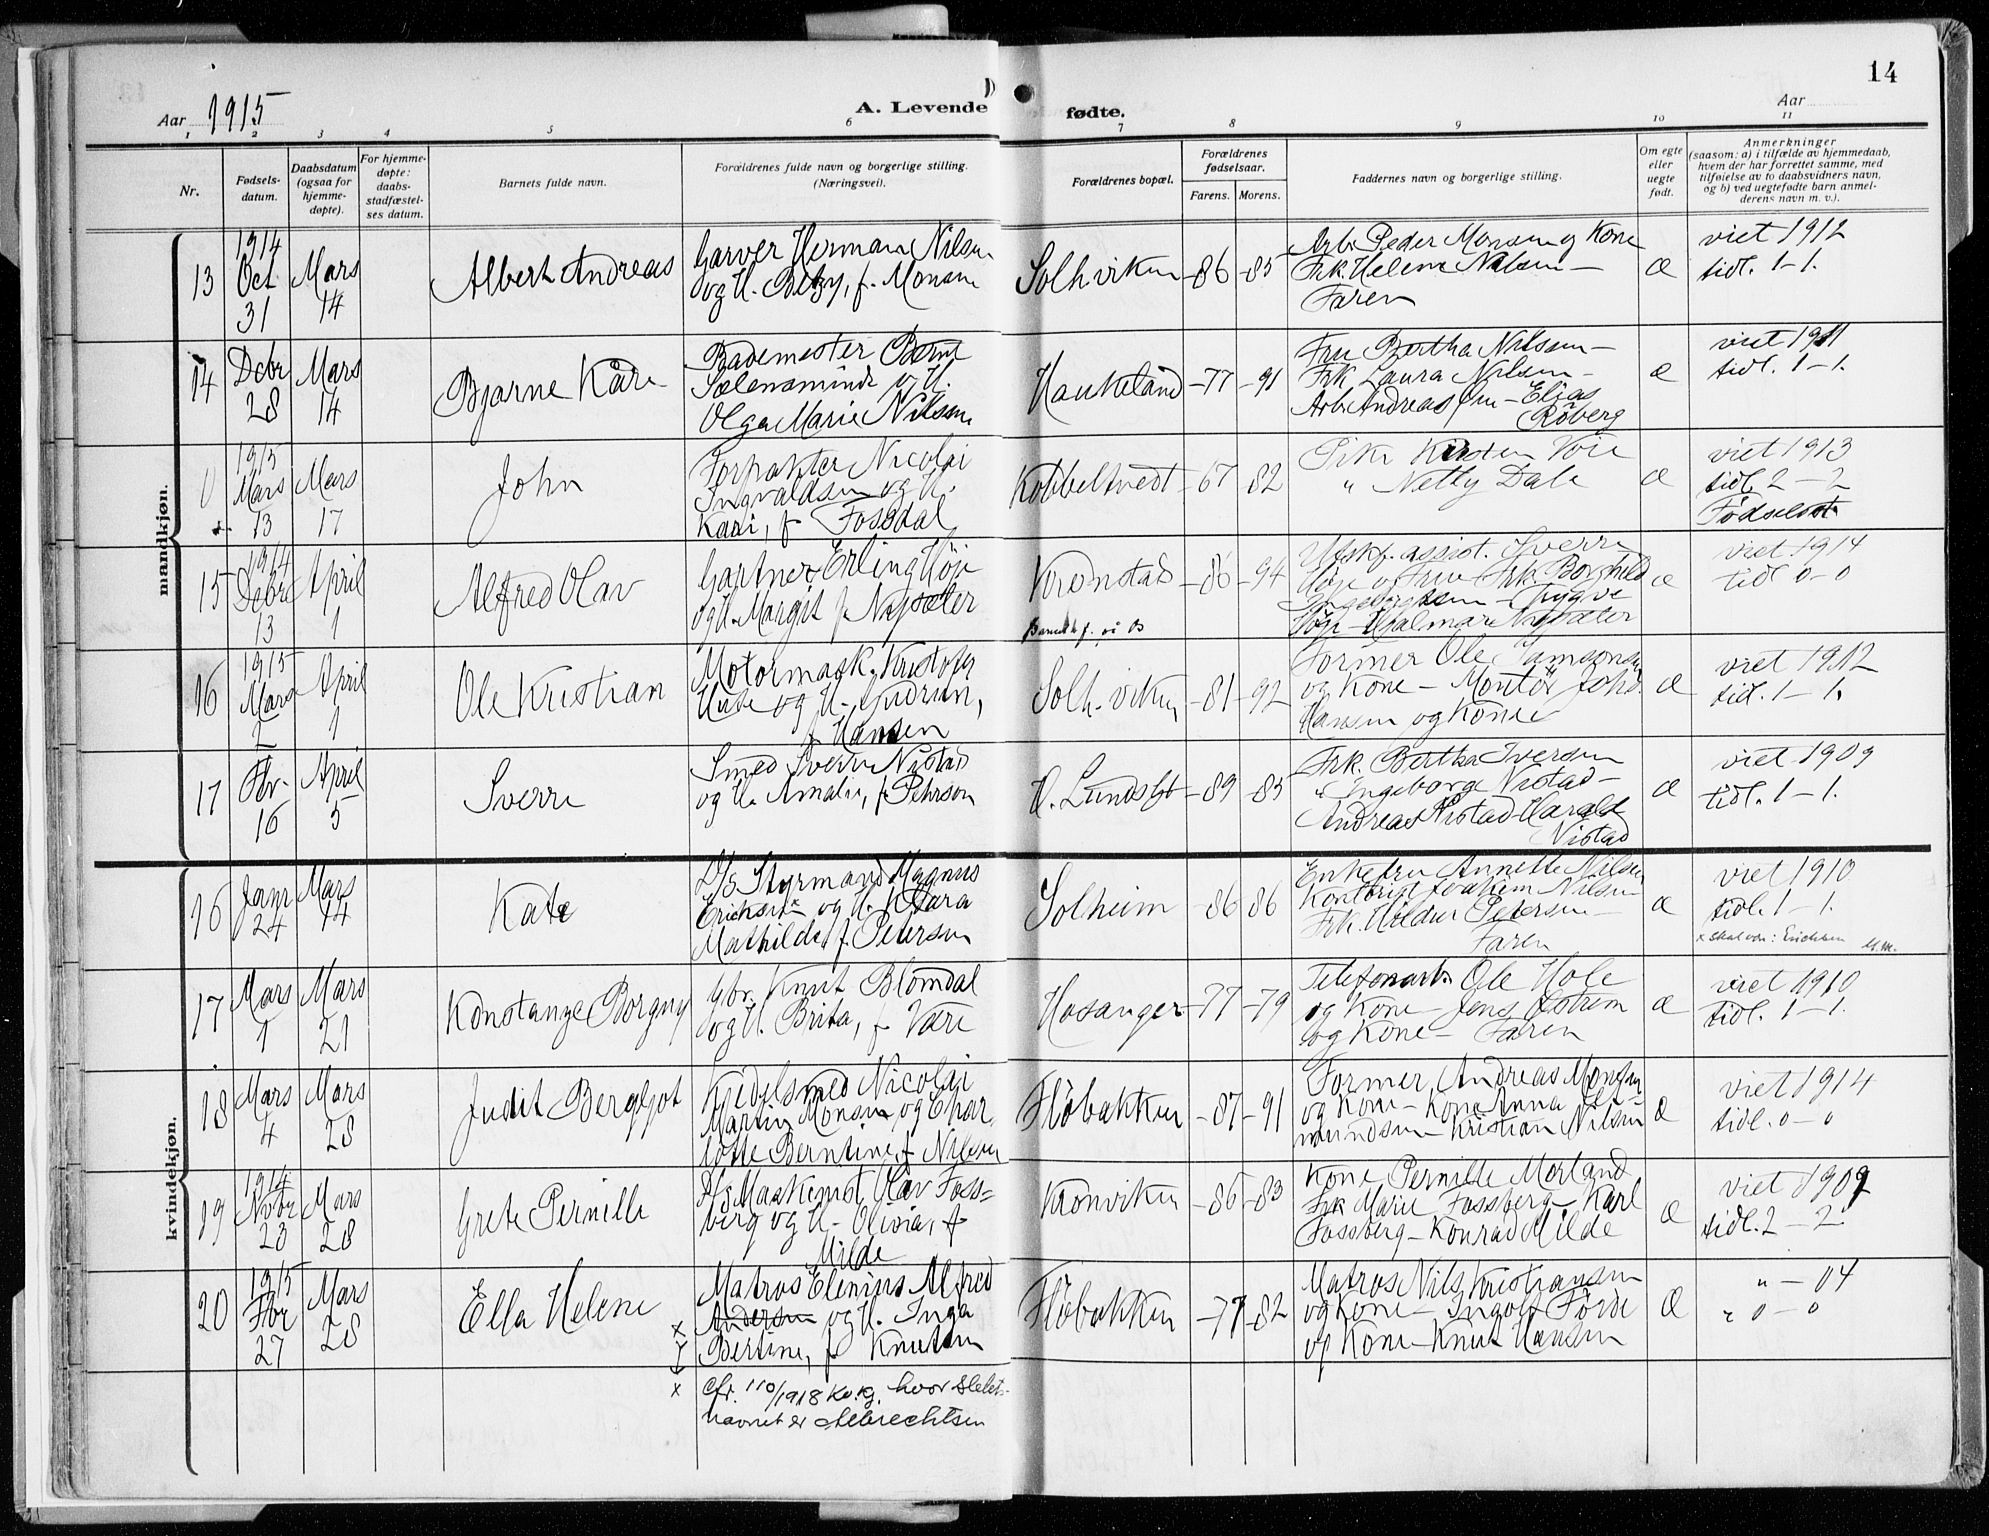 14
Aar 1915
A. Levende fødte.
Aar
1 2 3 4 5 6 7 8 9 10 11
Nr.
Fødsels-
datum.
Daabsdatum
(ogsaa for
hjemme-
døpte).
For hjemme-
døpte:
daabs-
stadfæstel-
ses datum.
Barnets fulde navn.
Forældrenes fulde navn og borgerlige stilling.
(Næringsvei).
Forældrenes bopæl.
Forældrenes
fødselsaar.
Farens. Morens.
Faddernes navn og borgerlige stilling.
Om egte
eller
uegte
født.
Anmerkninger
(saasom: a) i tilfælde av hjemmedaab,
hvem der har forrettet samme, med
tilføielse av to daabsvidners navn,
og b) ved uegtefødte barn anmel-
derens navn m. v.).
mandkjøn.
13
1914
Oct
31
Mars
14
Albert Andreas
Garver Herman Nilsen
og H. Betzy, f. Monsen
Solhviken
-86 -85
Arb. Peder Monsen og Kone
Frk. Helene Nilsen -
Faren
æ
viet 1912
tidl. 1-1.
14
Debr
28
Mars
14
Bjarne Kåre
Bademester Bernt
Sælensminde og H.
Olga Marie Nilsen
Haukeland
-77 -91
Fru Bertha Nilsen -
Frk Laura Nilsen -
Arb. Andreas - Elias
Röberg
æ
viet 1911
tidl. 1-1.
0
1915
Mars
13
Mars
17
John
Forpakter Nicolai
Ingvaldsen og H.
Kari, f Fossdal
Kobbeltvedt
-67 -82
Pike Kirsten Voie
" Netty Dale
æ
viet 1913
tidl. 2-2
Fødselsst.
15
1914
Debr
13
April
1
Alfred Olav
Gartner Erling Höje
og H. Margit f Nysæter
Kronstad
-86 -94
assist. Sverre
Höje og Frue Frk. Borghild
Ingebrigtsen - Trygve
Höje - Hjalmar Nysæter
æ
viet 1914
tidl 0-0
16
1915
Mars
2
April
1
Ole Kristian
Motormask. Kristofer
og H. Gudrun,
f Hansen
Solh.viken
-81 -92
Former Ole Samsonsen
og Kone - Montör Johs.
Hansen og Kone
æ
viet 1912
tidl. 1-1.
17
Fbr.
16
April
5
Sverre
Smed Sverre Nistad
og H. Amalie, f Pehrson
-89 -85
Frk. Bertha Iversen
" Ingeborg Nistad -
Andreas Nistad - Harald
Nistad
æ
viet 1909
tidl. 1-1.
kvindekjøn.
16
Janr
24
Mars
14
Kate
D/S Styrmand Magnus
Ericksen x og H. Klara
Mathilde, f. Petersen
Solheim
-86 86
Enkefru Annette Nilsen
Kontorist Joakim Nilsen
Frk. Hildur Petersen -
Faren
æ
viet 1910
tidl. 1-1.
x skal være: Erichsen M.M.
17
Mars
1
Mars
21
Konstanze Borgny
Gbr. Knut Blomdal
og H. Brita, f Være
Hosanger
-77 -79
Telefonarb. Ole Hole
og Kone - Jens Østrem
og Kone - Faren
æ
viet 1910
tidl. 1-1.
18
Mars
4
Mars
28
Judit Bergljot
Kjedelsmed Nicolai
Martin Monsen og Char
lotte Berntine, f Nilsen
Flöbakken
-87 -91
Former Andreas Monsen
og Kone - Kone Anna As-
mundsen - Kristian Nilsen
æ
viet 1914
tidl. 0-0
19
1914
Nvbr
23
Mars
28
Grete Pernille
D/S Maskinist Olav Foss=
berg og H. Olivia, f
Milde
Kronviken
-86 -83
Kone Pernille Morland
Frk Marie Fossberg - Karl
Fossberg - Konrad Milde
æ
viet 1909
tidl. 2-2
20
1915
Fbr
27
Mars
28
Ella Helene
Matros Elenius Alfred
x Andersen og H. Inga
Bertine, f Knutsen
Flöbakken
-77 -82
Matros Nils Kristiansen
og Kone - Ingolf Förde
og Kone - Knut Hansen
æ
" - 04
" 0-0
x cfr. 110/1918 Kv.kj. hvor slekts-
navnet er Albrechtsen